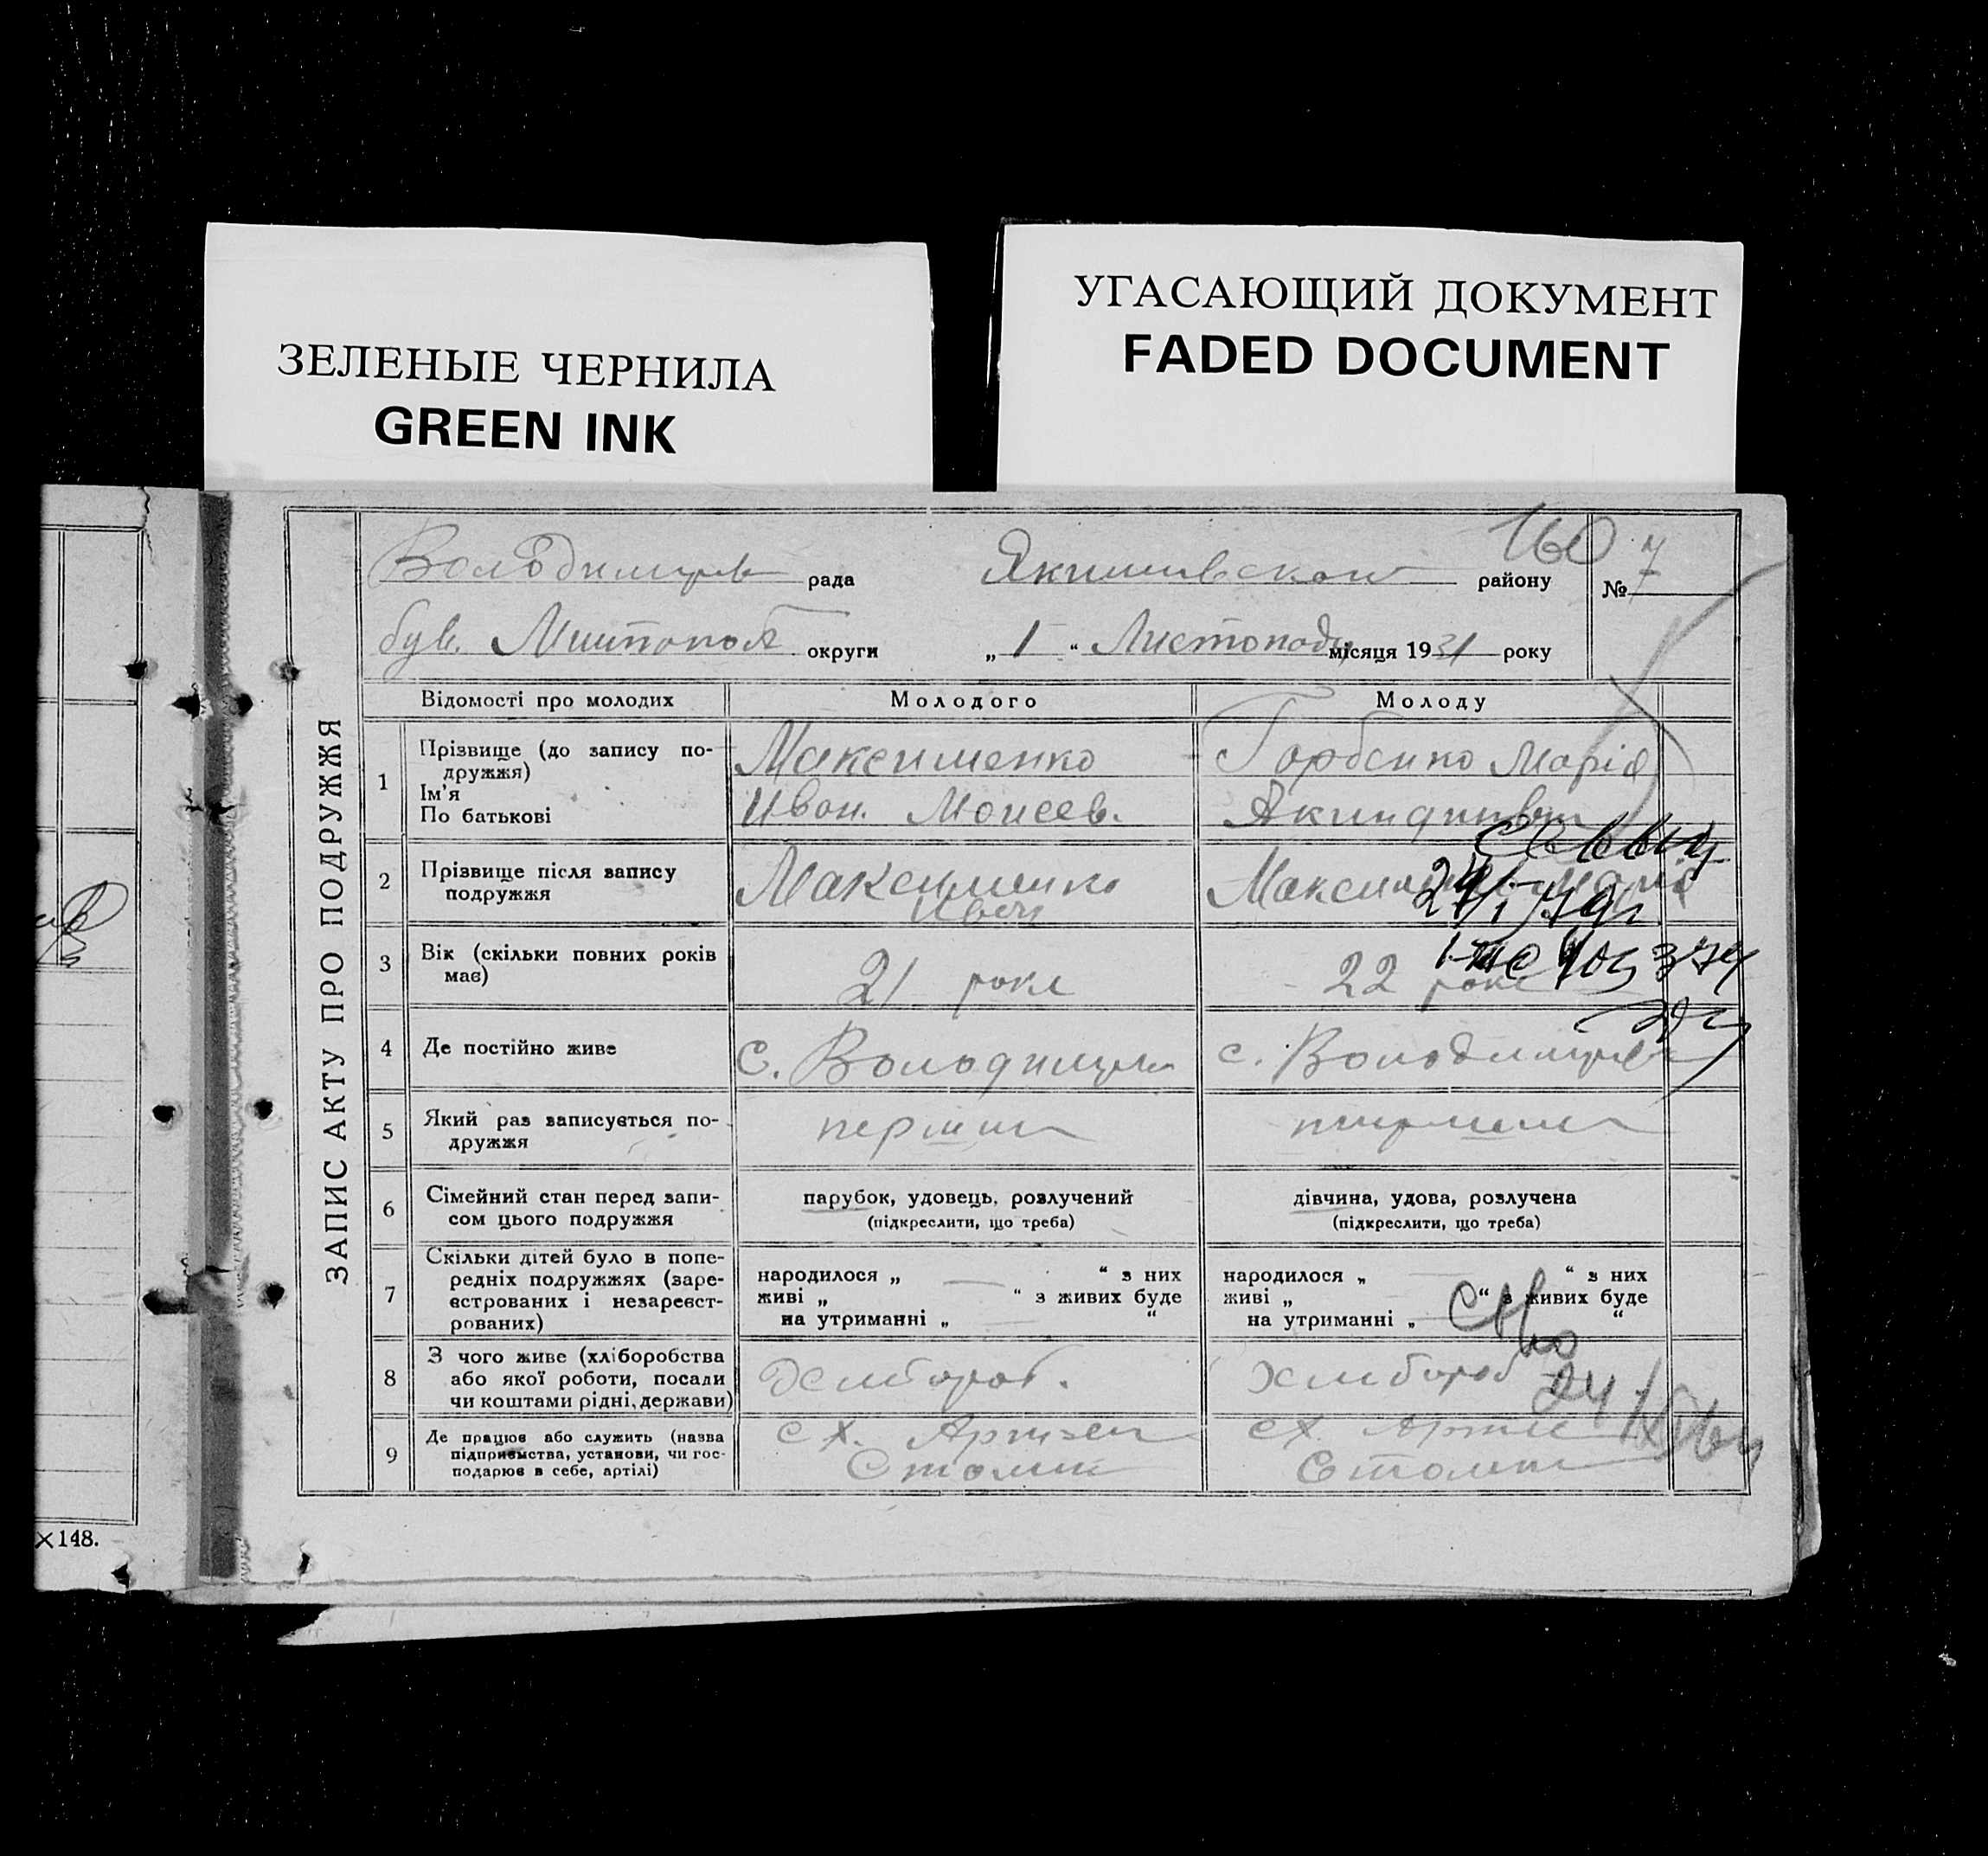 ЗЕЛЕНЫЕ ЧЕРНИЛА
GREEN INK
УГАСАЮЩИЙ ДОКУМЕНТ
FADED DOCUMENT
ЗАПИС АКТУ ПРО ПОДРУЖЖЯ
160
рада
району
№ 7
був. округи
„ 1 “ Листопада місяця 1931 року
Відомості про молодих
Молодого
Молоду
1
Прізвище (до запису по-
дружжя)
Ім'я
По батькові
Максименко
Иван. Моисев.
Горбенко Марія
2
Прізвище після запису
подружжя
Максименко
Иван
24/I
3
Вік (скільки повних років
має)
21 роки
22 роки
4
Де постійно живе
с.
с.
5
Який раз записується по-
дружжя
6
Сімейний стан перед запи-
сом цього подружжя
парубок, удовець, розлучений
(підкреслити, що треба)
дівчина, удова, розлучена
(підкреслити, що треба)
7
Скільки дітей було в попе-
редніх подружжях (заре-
єстрованих і незареєст-
рованих)
народилося „ “ з них
живі „ “ з живих буде
на утриманні „ “
народилося „ “ з них
живі „ “ з живих буде
на утриманні „ “
8
З чого живе (хліборобства
або якої роботи, посади
чи коштами рідні, держави)
Хлібороб.
Хлібороб
9
Де працює або служить (назва
підприємства, установи, чи гос-
подарює в себе, артілі)
сх.
сх.
×148.